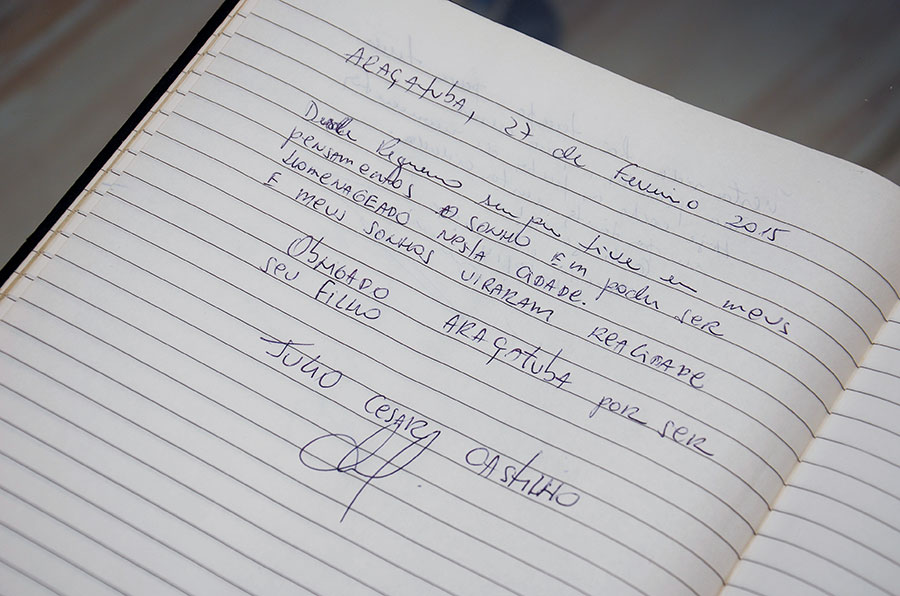 ARAÇATUBA, 27 de Fevereiro 2015
Desde Pequeno sempre tive em meus
pensamentos o sonho em poder ser
Homenageado nesta cidade.
E meus sonhos viraram realidade
Obrigado Araçatuba por ser
seu Filho
Julio Cesar Castilho